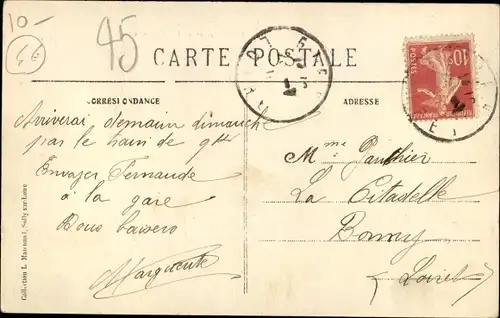 10-
45
CARTE POSTALE
CORRESPONDANCE
ADRESSE
10c
POSTES
Arriverai demain dimanch
par le train de 9h
Envoyez Fernande
à la gare
Bons baisers
Marguerite
Mme Gauthier
La Citadelle
Bonny
(Loiret)
Collection L. Marchand, Sully-sur-Loire